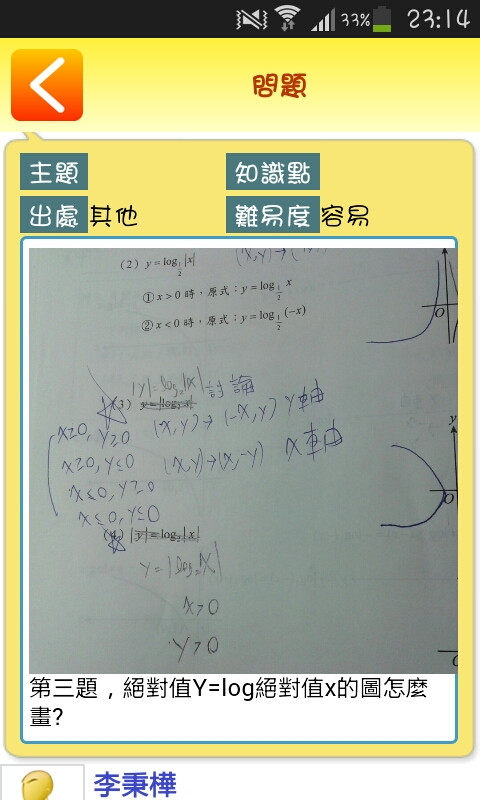 33% 23:14
問題
主題 知識點
出處 其他 難易度 容易
(2) y=log_{1/2}|x| (x,y)→(
①x>0 時，原式：y=log_{1/2} x
②x<0 時，原式：y=log_{1/2}(-x)
O
|y|=log₂|x| 討論
(3)
x≥0, y≥0 (x,y)→(-x,y) y軸
x≥0, y≤0 (x,y)→(x,-y) x軸
x≤0, y≥0
x≤0, y≤0
y
O
(4) |y|=log₂|x|
y=|log₂x|
x>0
y>0
第三題，絕對值Y=log絕對值x的圖怎麼
畫?
李秉樺